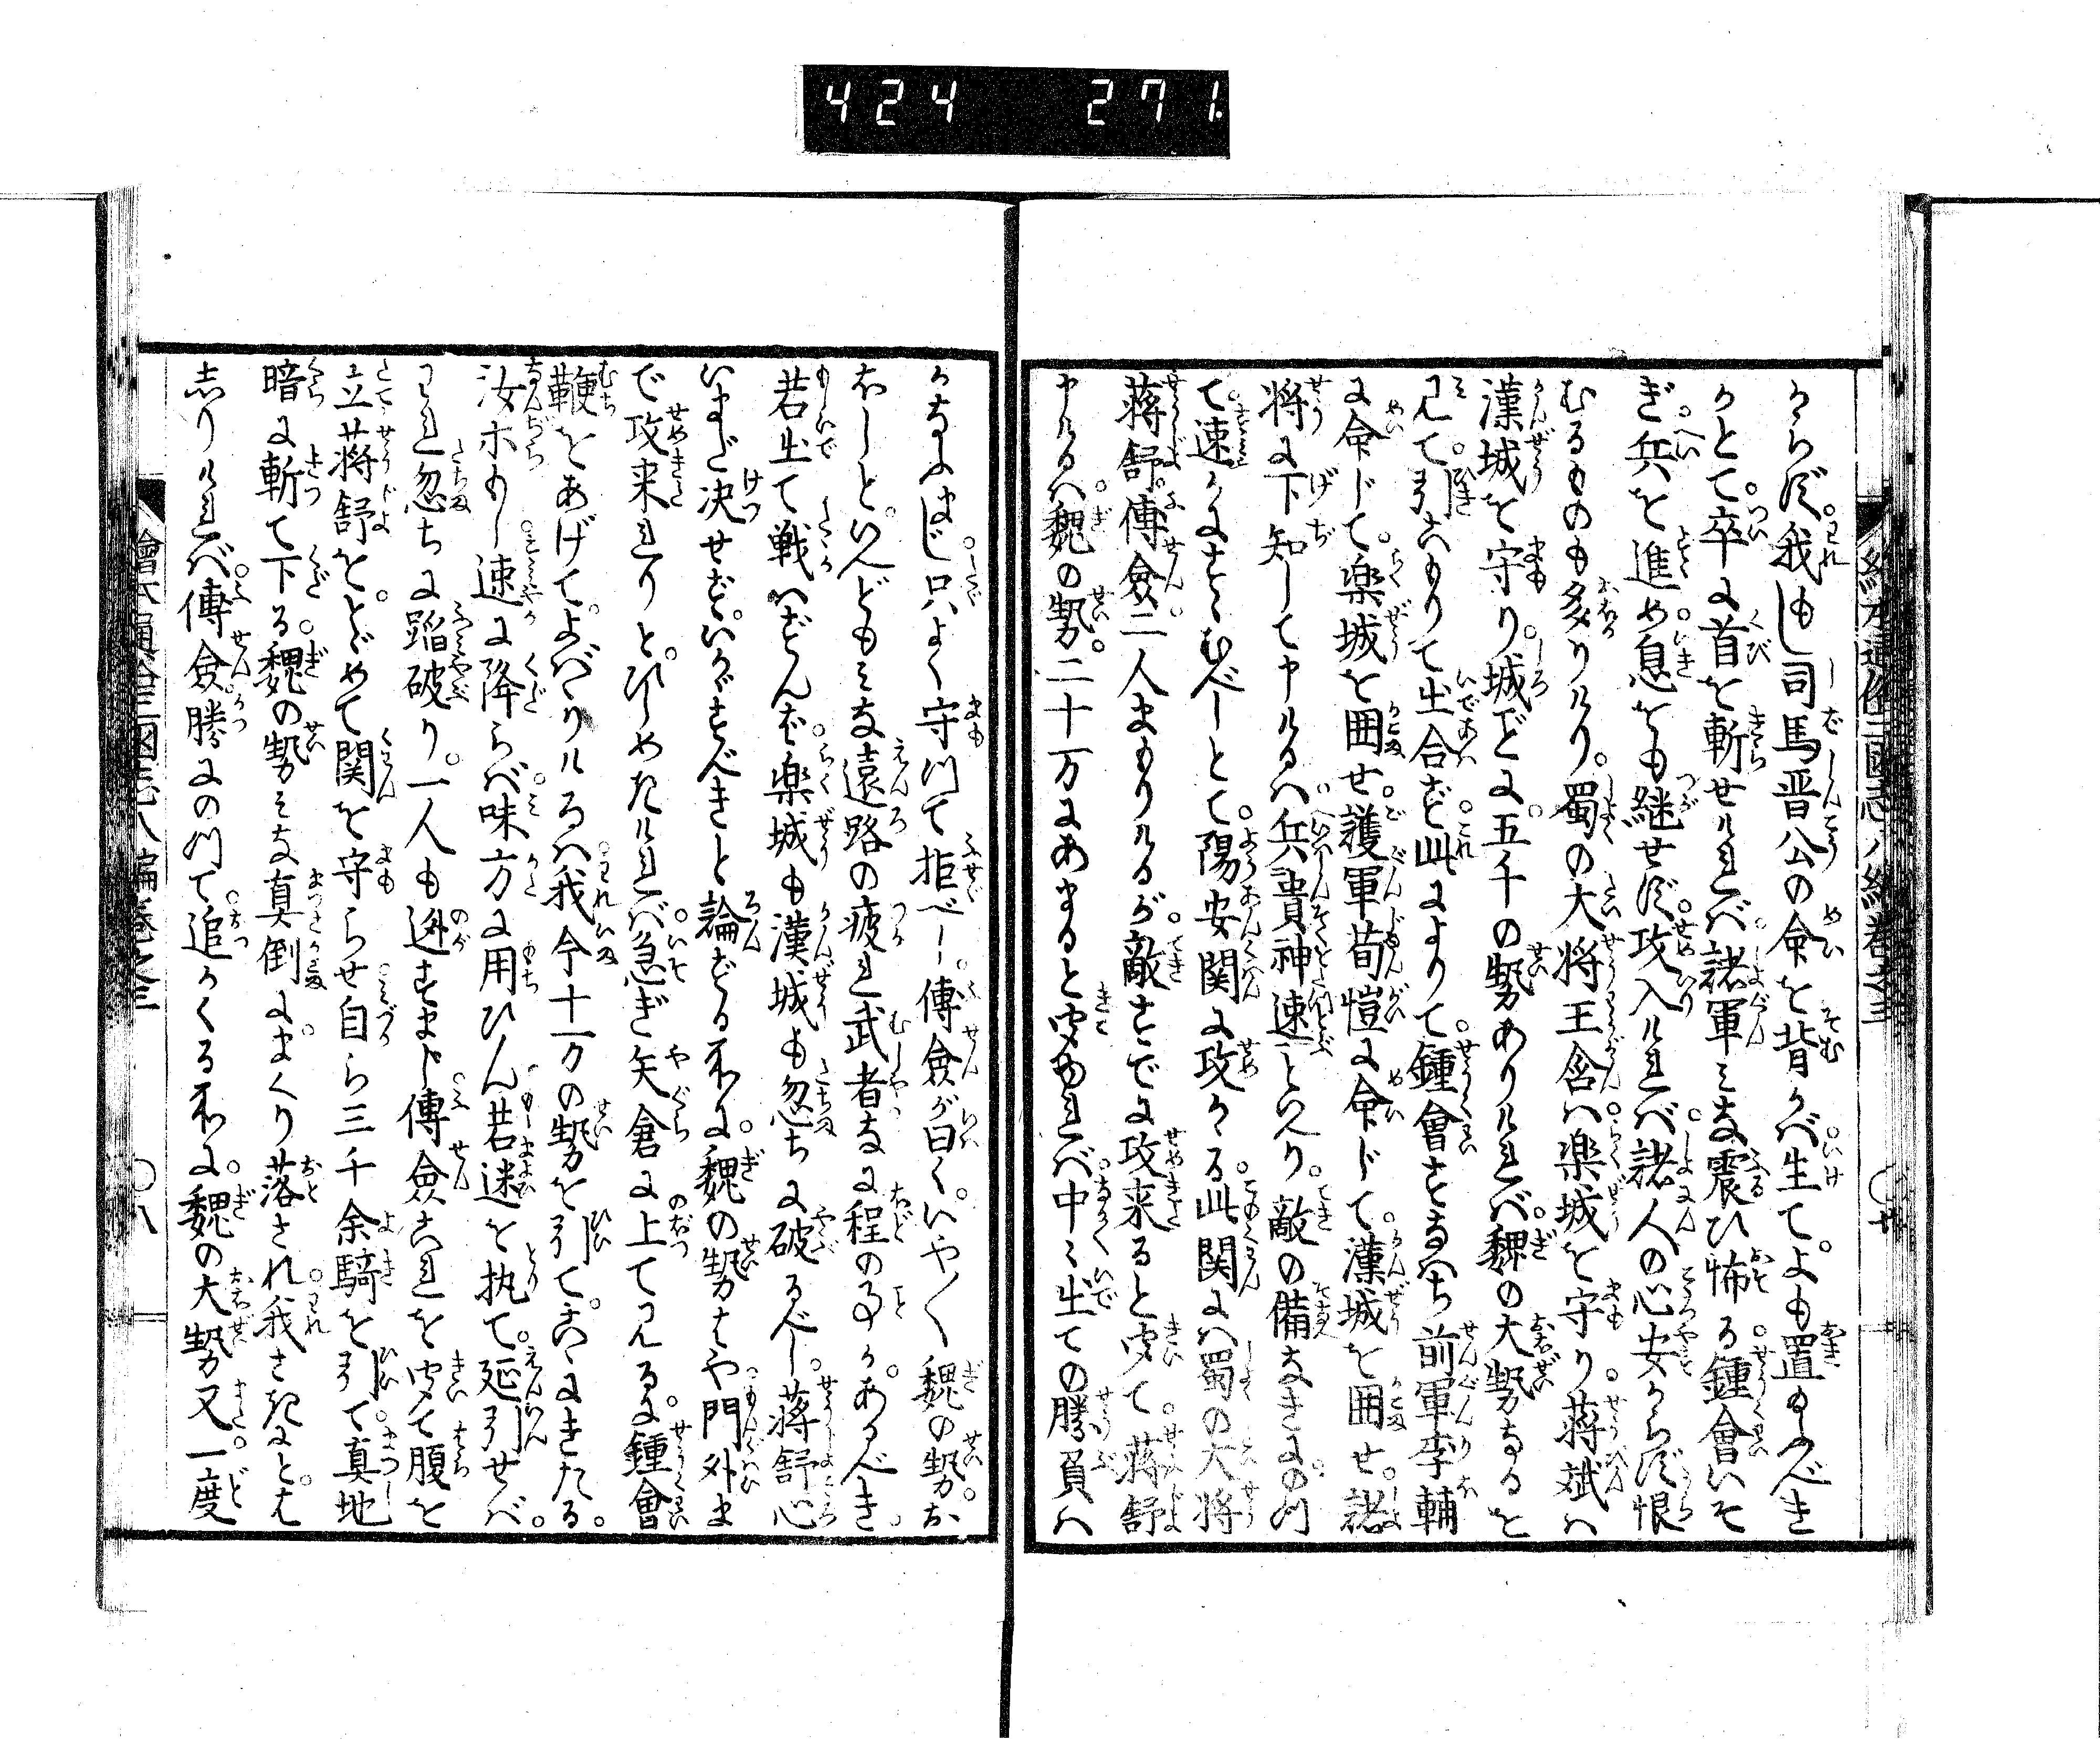 424 271.
からず。我もし司馬晋公の命を背かバ生て。よも置玉ふべき
かとて。卒に首を斬せければ諸軍ミな震ひ怖る。鍾會いそ
ぎ。兵を進め。息をも継せず。攻入ければ。諸人の心安からず。恨
むるものも多かりけり。蜀の大将王含ハ。楽城を守り。蒋斌ハ
漢城を守り。城ごに。五千の勢ありければ。魏の大勢なるを
見て。引こもりて出合ず。此によりて。鍾會すなハち前軍李輔
に命じて。楽城を囲せ。護軍荀愷に命じて。漢城を囲せ。諸
将に下知して申けるハ。兵貴神速といへり。敵の備なきにのつ
て。速かにすゝむべしとて。陽安関に攻かゝる。此関にハ蜀の大将
蒋舒。傅僉。二人まもりけるが。敵すでに攻来ると聞て。蒋舒
申けるハ。魏の勢。二十万にあまると聞ゆれバ。中々出ての勝負ハ
かなふまじ。只よく守つて拒べし。傅僉が曰く。いや〳〵魏の勢。お
ほしと。いへどもミな遠路の疲れ武者なに程の事か。あるべき。
若出て戦ハずんば。楽城も漢城も忽ちに破るべし。蒋舒心
いまだ決せず。いかゞすべきと論ずる所に。魏の勢はや門外ま
で攻来れりと。ひしめきたければ。急ぎ矢倉に上て見るに。鍾會
鞭をあげて。よばゝりけるハ。我今十一万の勢を引て。こゝにきたる。
汝ホもし。速に降らば。味方に用ひん。若迷を执て。延引せバ。
われ忽ちに蹈破り。一人も迯すまじ。傅僉これを聞て腹を
立。蒋舒を。とゞめて関を守らせ。自ら三千余騎を引て。真地
暗に斬て下る。魏の勢ミな真倒に。まくり落され。我さきにと。は
しりければ。傅僉。勝にのつて。追かくる所に。魏の大勢又。一度